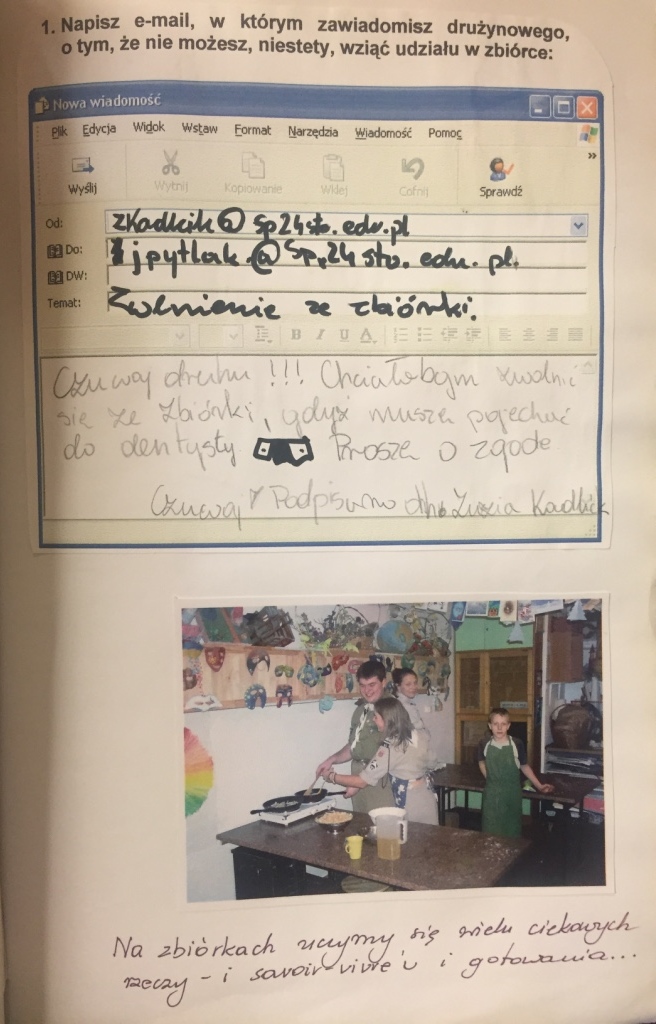 1. Napisz e-mail, w którym zawiadomisz drużynowego,
o tym, że nie możesz, niestety, wziąć udziału w zbiórce:
Nowa wiadomość
Plik Edycja Widok Wstaw Format Narzędzia Wiadomość Pomoc
»
Wyślij Wytnij Kopiowanie Wklej Cofnij Sprawdź
Od: zkadlcik@sp24sto.edu.pl
Do: jpytlak.@Sp.24sto.edu.pl.
DW:
Temat: Zwolnienie ze zbiórki.
B I U A
Czuwaj druhu !!! Chciałabym zwolnić
się ze zbiórki, gdyż muszę pojechać
do dentysty Proszę o zgodę
Czuwaj Podpisano dh. Zuzia
Na zbiórkach uczymy się wielu ciekawych
rzeczy - i savoir-vivre'u i gotowania...